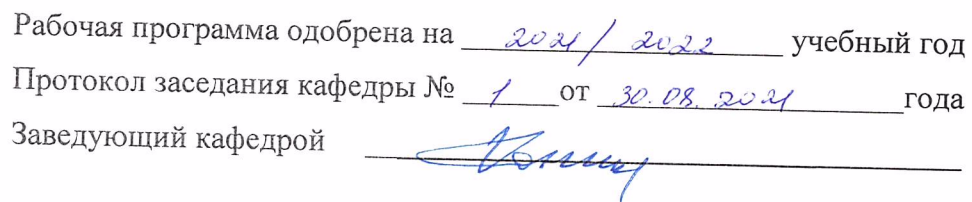 Рабочая программа одобрена на 2021/2022 учебный год
Протокол заседания кафедры № 1 от 30.08.2021 года
Заведующий кафедрой